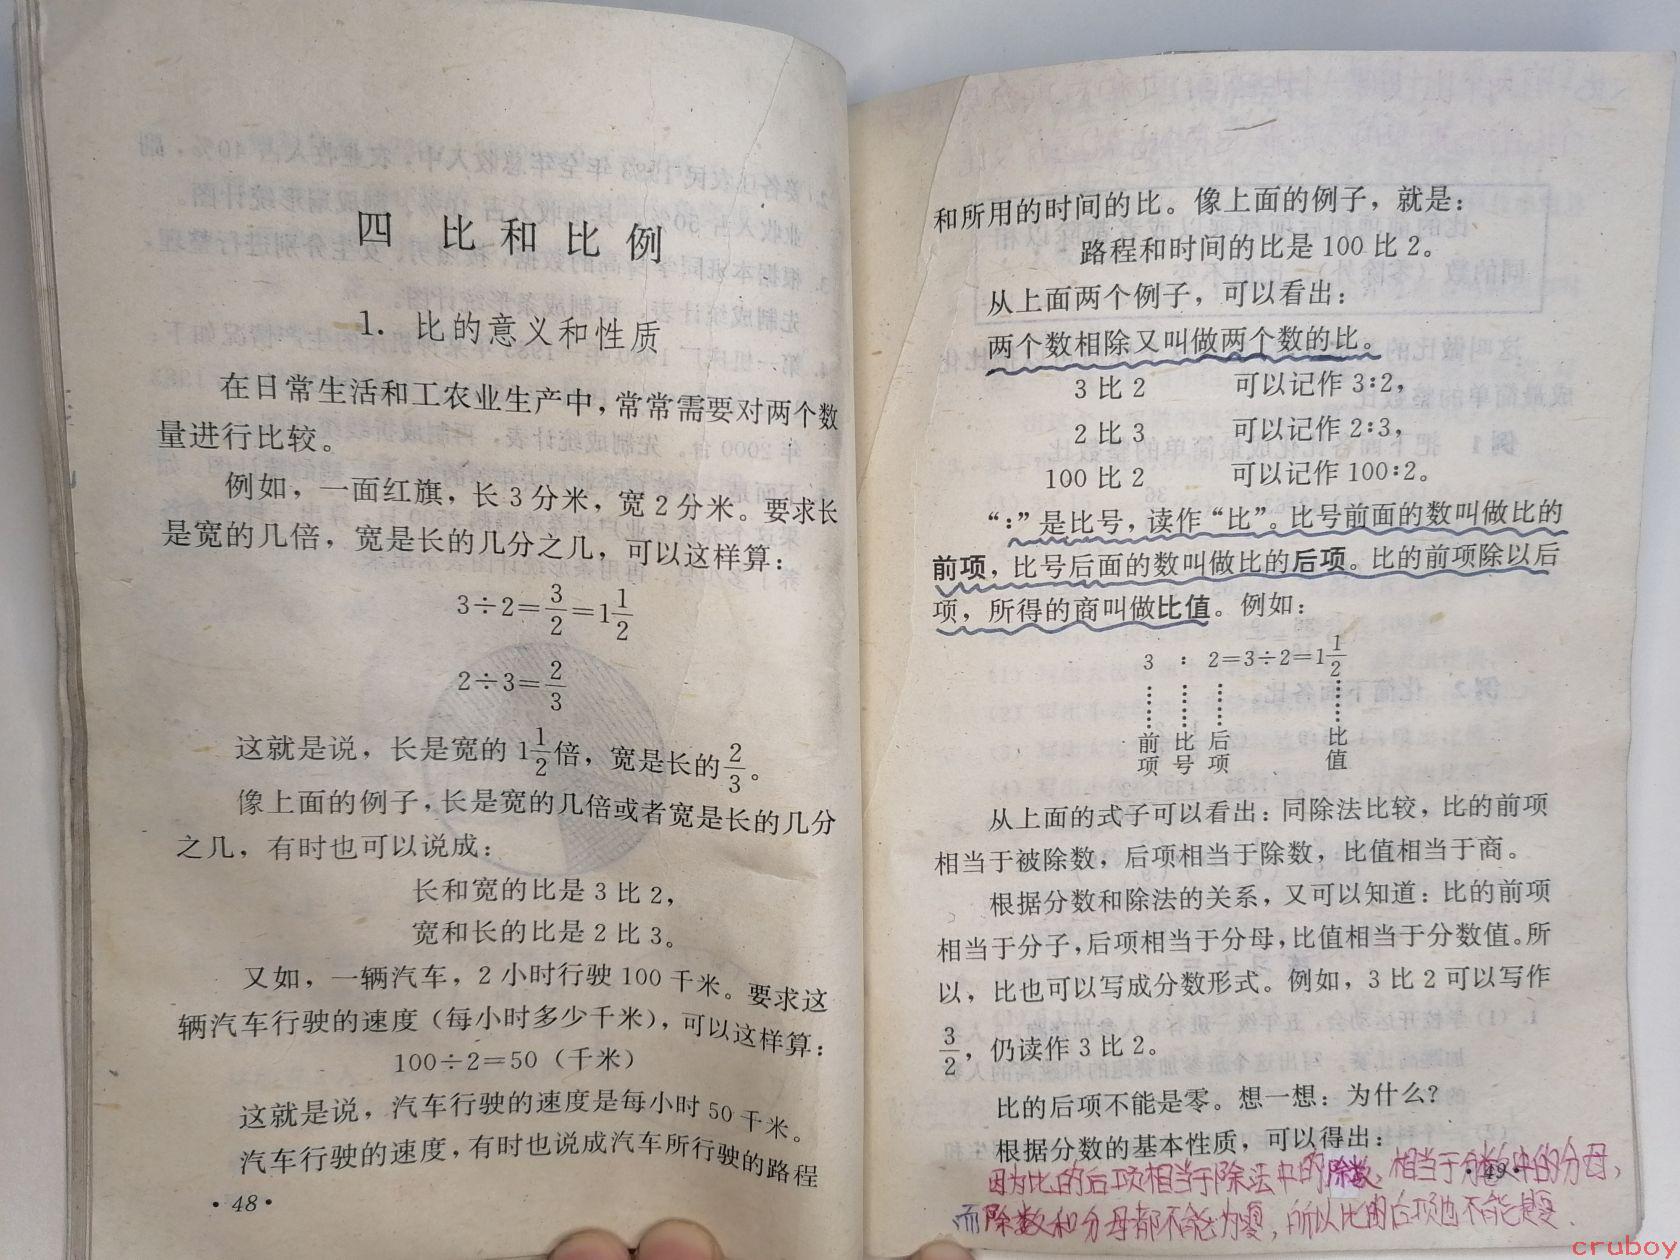 四 比和比例
1. 比的意义和性质
在日常生活和工农业生产中，常常需要对两个数
量进行比较。
例如，一面红旗，长3分米，宽2分米。要求长
是宽的几倍，宽是长的几分之几，可以这样算：
3÷2=3/2=1 1/2
2÷3=2/3
这就是说，长是宽的1 1/2倍，宽是长的2/3。
像上面的例子，长是宽的几倍或者宽是长的几分
之几，有时也可以说成：
长和宽的比是3比2，
宽和长的比是2比3。
又如，一辆汽车，2小时行驶100千米。要求这
辆汽车行驶的速度（每小时多少千米），可以这样算：
100÷2=50（千米）
这就是说，汽车行驶的速度是每小时50千米。
汽车行驶的速度，有时也说成汽车所行驶的路程
·48·
和所用的时间的比。像上面的例子，就是：
路程和时间的比是100比2。
从上面两个例子，可以看出：
两个数相除又叫做两个数的比。
3比2 可以记作3:2，
2比3 可以记作2:3，
100比2 可以记作100:2。
“:”是比号，读作“比”。比号前面的数叫做比的
前项，比号后面的数叫做比的后项。比的前项除以后
项，所得的商叫做比值。例如：
3 : 2=3÷2=1 1/2
前项 比号 后项 比值
从上面的式子可以看出：同除法比较，比的前项
相当于被除数，后项相当于除数，比值相当于商。
根据分数和除法的关系，又可以知道：比的前项
相当于分子，后项相当于分母，比值相当于分数值。所
以，比也可以写成分数形式。例如，3比2可以写作
3/2，仍读作3比2。
比的后项不能是零。想一想：为什么？
根据分数的基本性质，可以得出：
·49·
因为比的后项相当于除法中的除数，相当于分数中的分母，
而除数和分母都不能为零，所以比的后项也不能是零.
cruboy